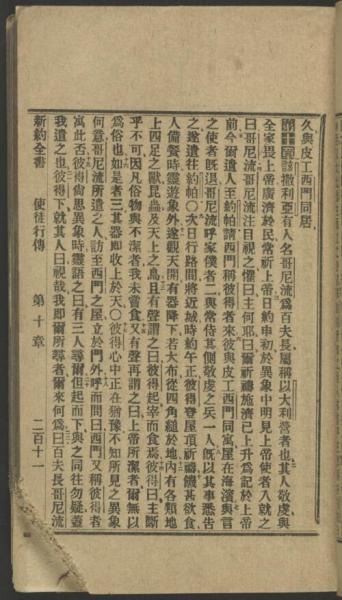 久與皮工西門同居
第十章 該撒利亞有人名哥尼流爲百夫長屬稱以大利營者也其人敬虔與
全家畏上帝廣濟於民常祈上帝日約申初於異象中明見上帝使者入就之
曰哥尼流哥尼流注目視之懼曰主何耶曰爾祈禱施濟已上升爲記於上帝
前今爾遣人至約帕請西門稱彼得者來彼與皮工西門同寓屋在海濱與言
之使者旣退哥尼流呼家僕者二與常侍其側敬虔之兵一人旣以其事悉告
之遂遣往約帕〇次日行路間將近城時約午正彼得登屋頂祈禱饑甚欲食
人備餐時靈遊象外遂觀天開有器降下若大布從四角縋於地內有各類地
上四足之獸昆蟲及天上之鳥且有聲謂之曰彼得起宰而食焉彼得曰主斷
乎不可因凡俗物與不潔者我未嘗食又有聲再謂之曰上帝所潔者爾無以
爲俗也如是者三其器卽收上於天〇彼得心中正在猶豫不知所見之異象
何意哥尼流所遣之人訪至西門之屋立於門外呼而問曰西門又稱彼得者
寓此否彼得尙思異象時靈語之曰有三人尋爾但起而下與之同往勿疑蓋
我遣之也彼得下就其人曰視哉我卽爾所尋者爾來何爲曰百夫長哥尼流
新約全書 使徒行傳 第十章 二百十一